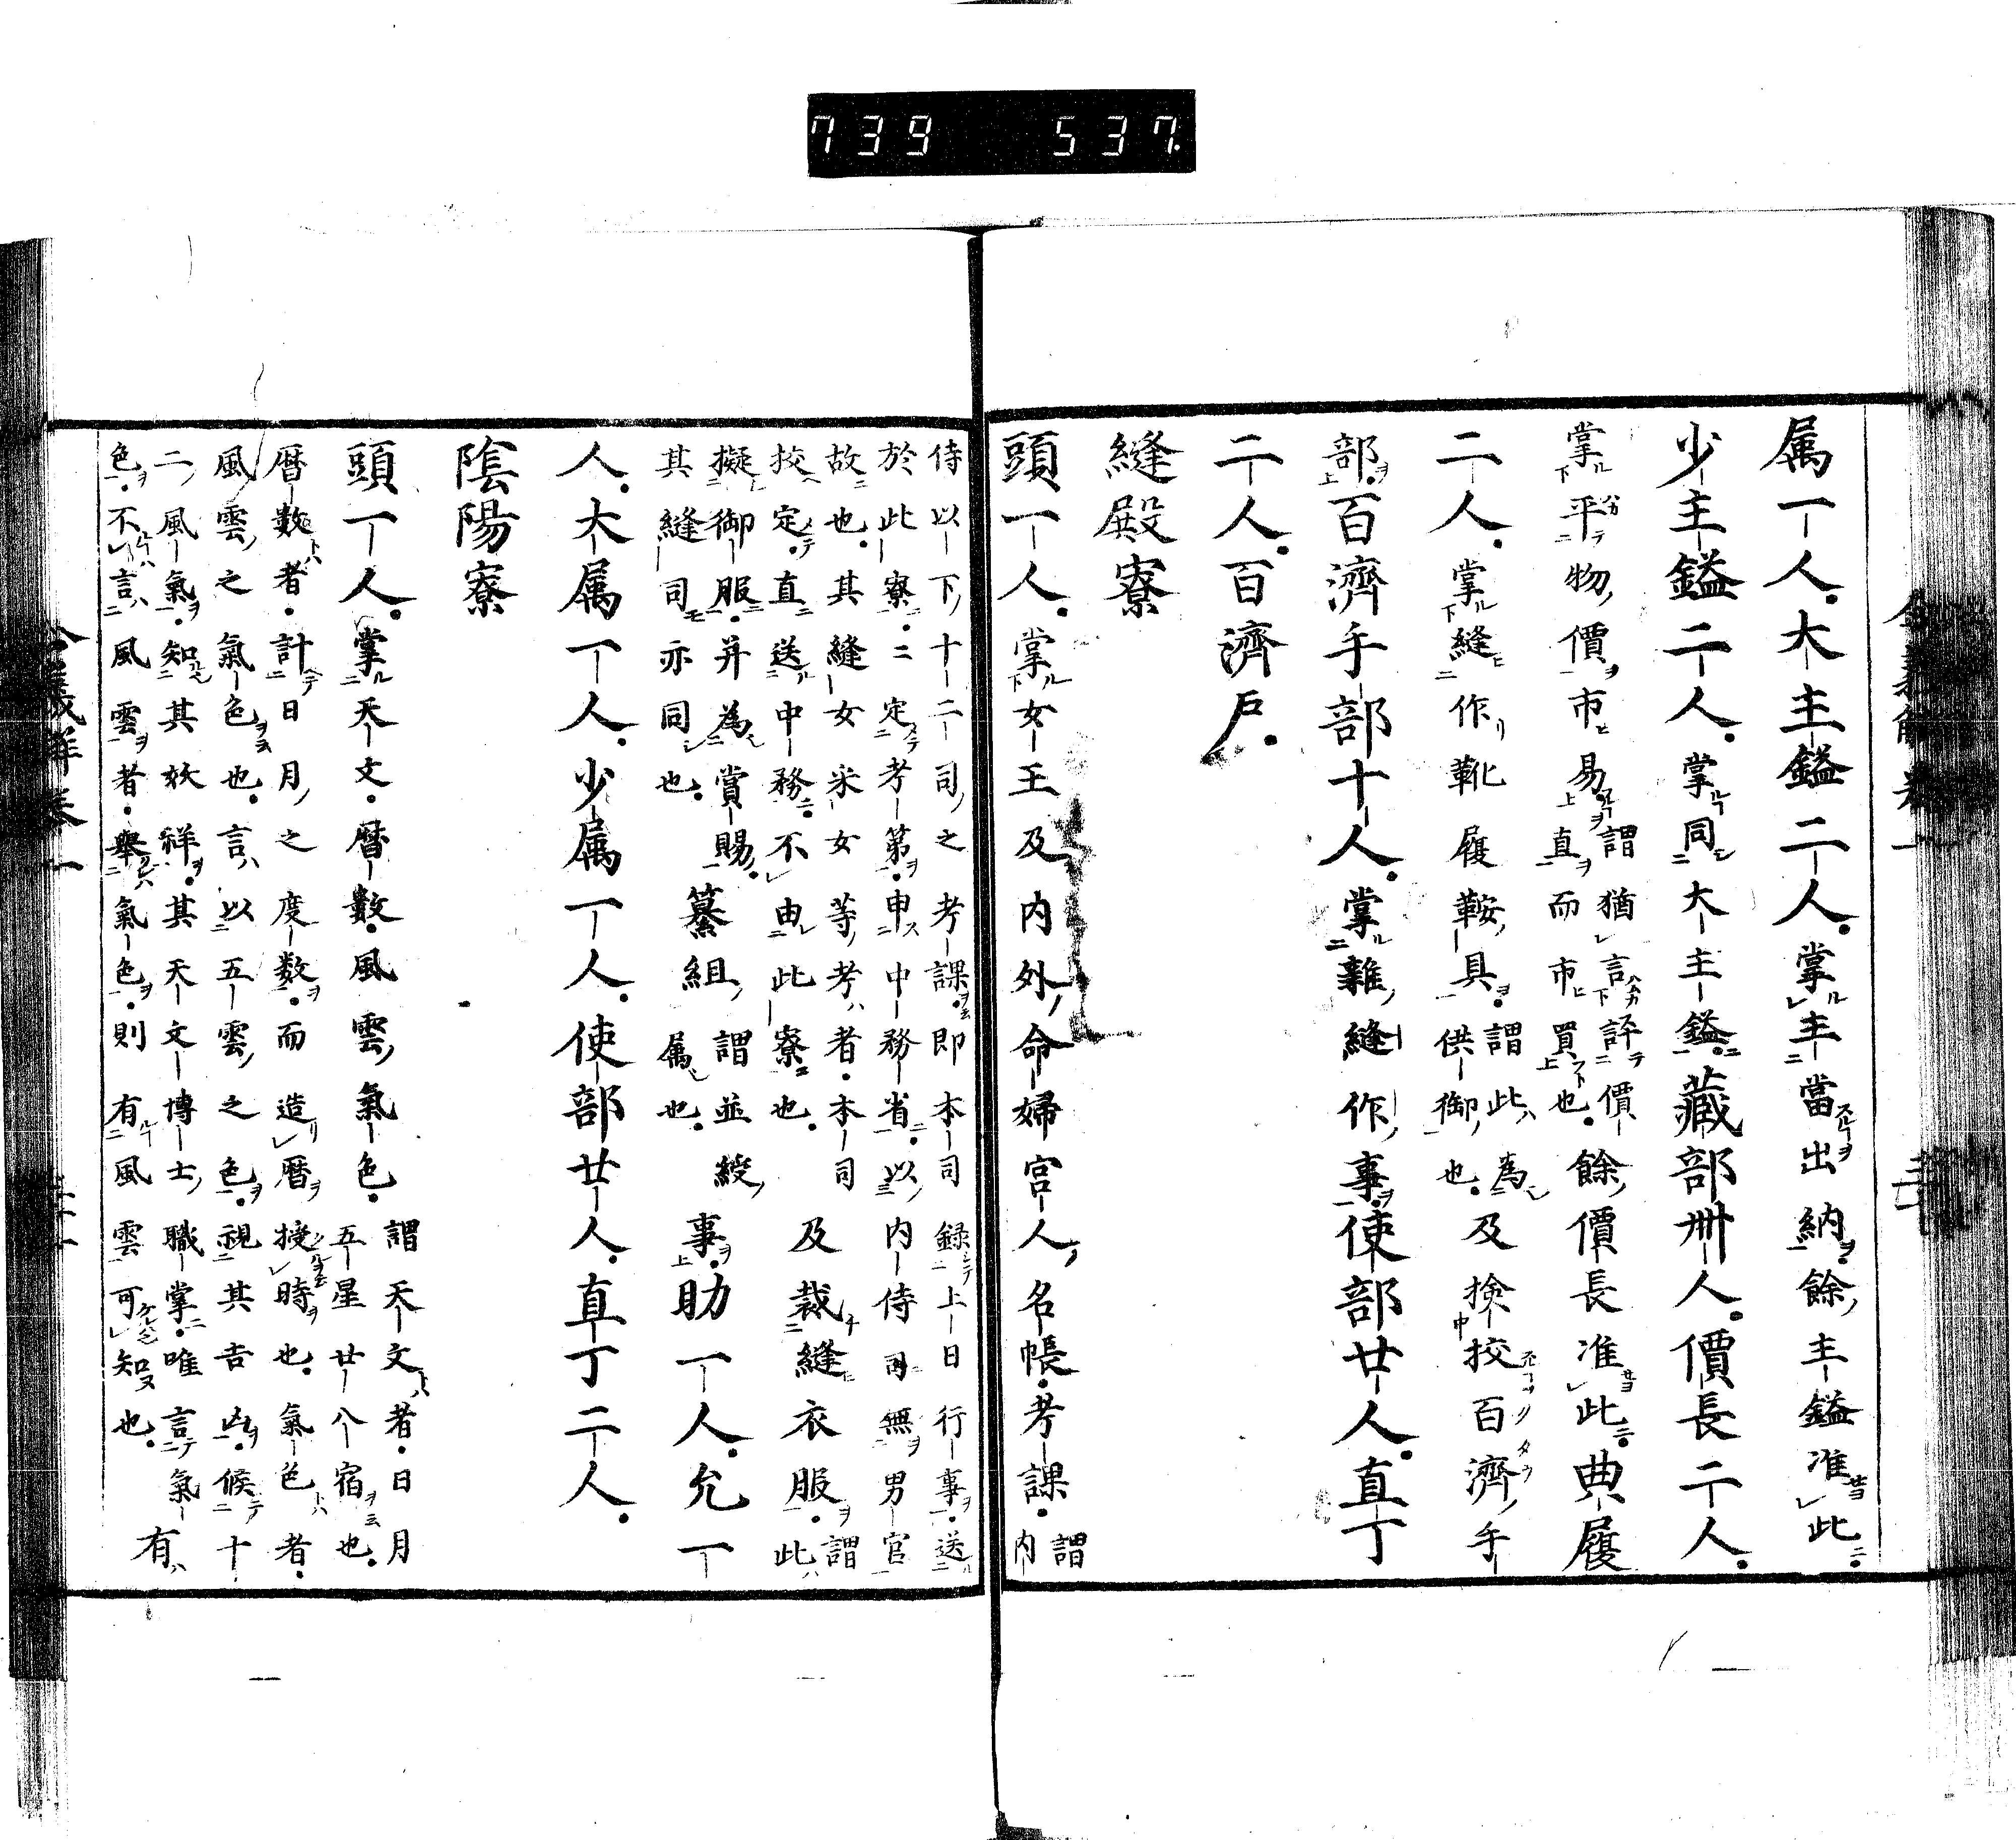 739 537
属一人大主鎰二人掌主當出納餘主鎰准此
少主鎰二人掌同大主鎰藏部卅人價長二人
掌平物價市易謂猶言評價直而市買也餘價長准此典履
二人掌縫作靴履鞍具謂此為供御也及撿挍百濟手
部百濟手部十人掌雜縫作事使部廿人直丁
二人百濟戸
縫殿寮
頭一人掌女王及内外命婦宮人名帳考課謂内
侍以下十二司之考課即本司録上日行事送
於此寮二定考第申中務省以内侍司無男官
故也其縫女采女等考者本司
挍定直送中務不由此寮也及裁縫衣服謂此
擬御服并為賞賜纂組謂並綬
其縫司亦同也属也事助一人允一
人大属一人少属一人使部廿人直丁二人
陰陽寮
頭一人掌天文暦數風雲氣色謂天文者日月五星廿八宿也
暦数者計日月之度数而造暦授時也氣色者
風雲之氣色也言以五雲之色視其吉凶候十
二風氣知其妖祥其天文博士職掌唯言氣
色不言風雲者舉氣色則有風雲可知也
令義解卷一